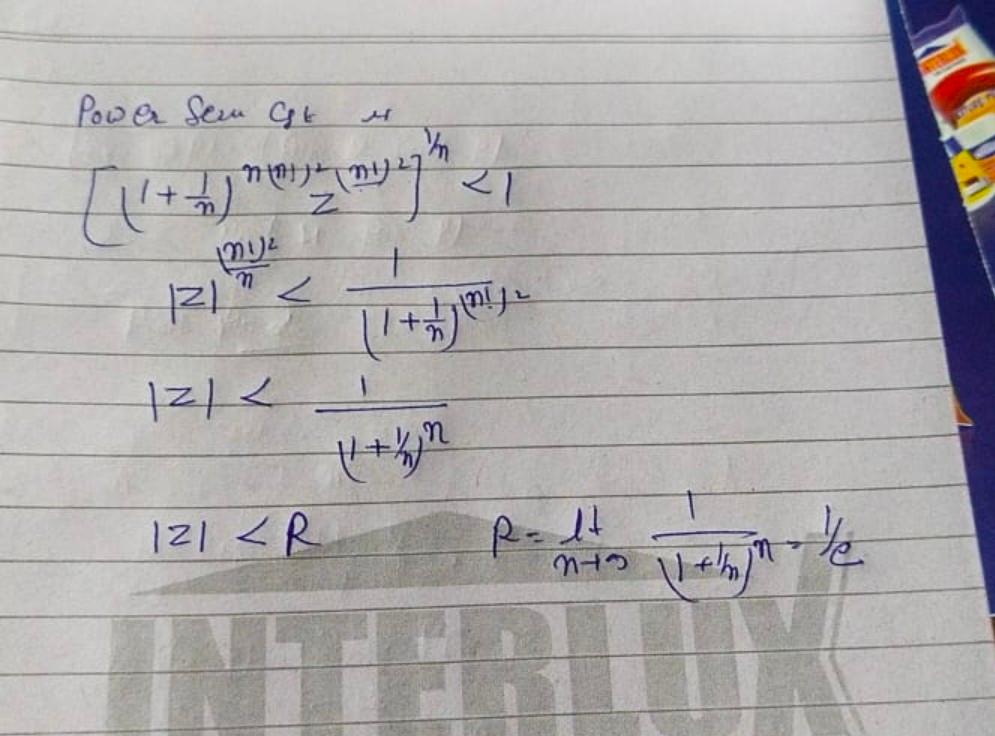 Power Seru Cgt if
[(1+1/n)^{n(n!)^2} z^{(n!)^2}]^{1/n} < 1
|z|^{(n!)^2/n} < 1/(1+1/n)^{(n!)^2}
|z| < 1/(1+1/n)^n
|z| < R R = lt n→∞ 1/(1+1/n)^n = 1/e
INTERLUX
INTERLUX